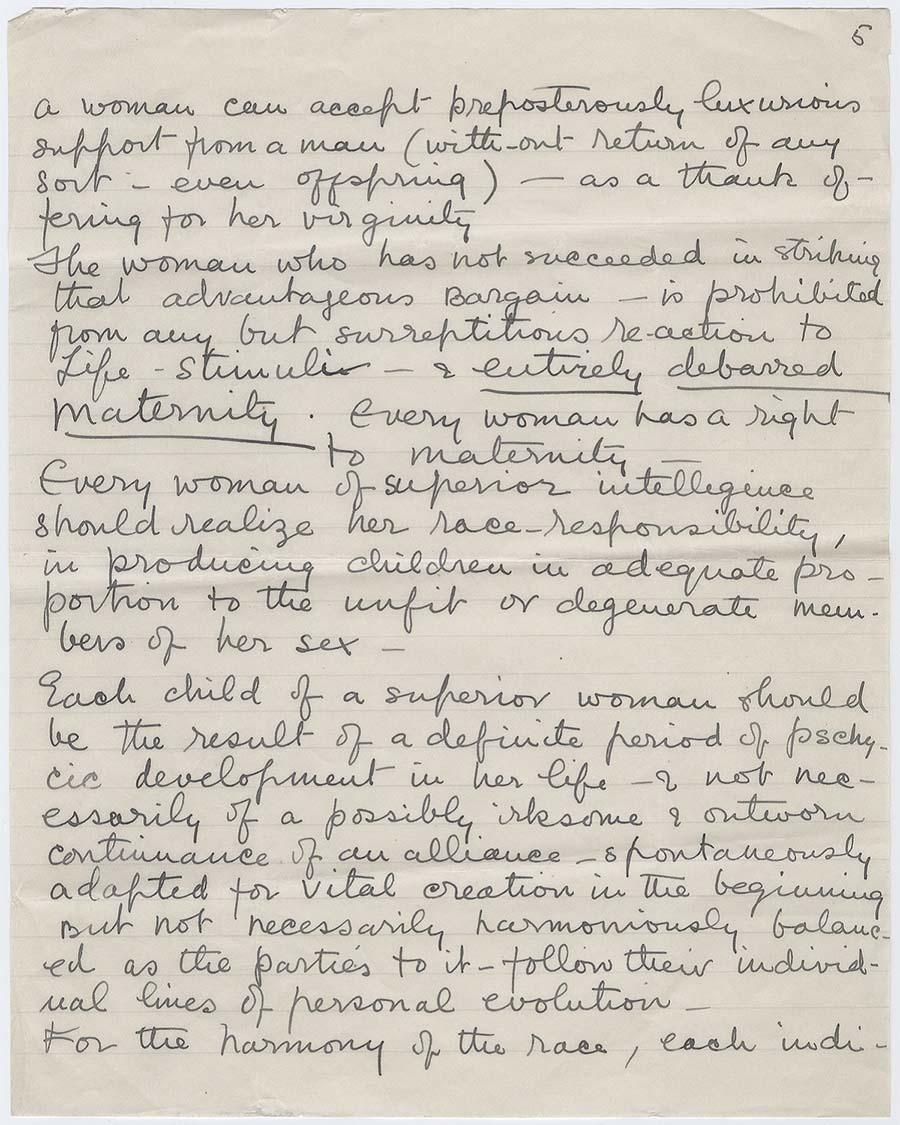 5
a woman can accept preposterously luxurious
support from a man (with-out return of any
sort - even offspring) — as a thank of-
fering for her virginity
The woman who has not succeeded in striking
that advantageous Bargain — is prohibited
from any but surreptitious re-action to
Life-stimuli — & entirely debarred
Maternity. Every woman has a right
to maternity —
Every woman of superior intellegence
should realize her race-responsibility,
in producing children in adequate pro-
portion to the unfit or degenerate mem-
bers of her sex —
Each child of a superior woman should
be the result of a definite period of pschy-
cic development in her life — & not nec-
essarily of a possibly irksome & outworn
continuance of an alliance — spontaneously
adapted for vital creation in the beginning
But not necessarily harmoniously balanc-
ed as the parties to it — follow their individ-
ual lines of personal evolution —
For the harmony of the race, each indi-